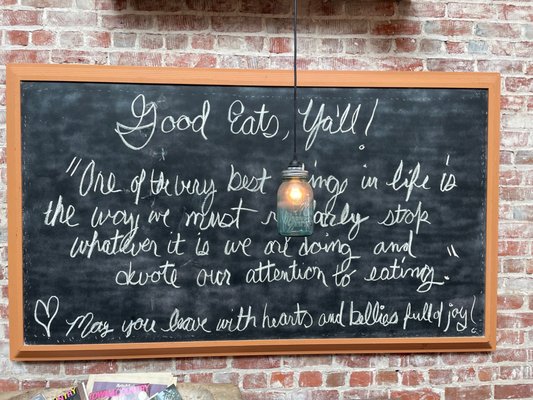 Good Eats, Ya'll!
"One of the very best ings in life is
the way we must r larly stop
whatever it is we are doing and
devote our attention to eating."
May you leave with hearts and bellies full of joy!